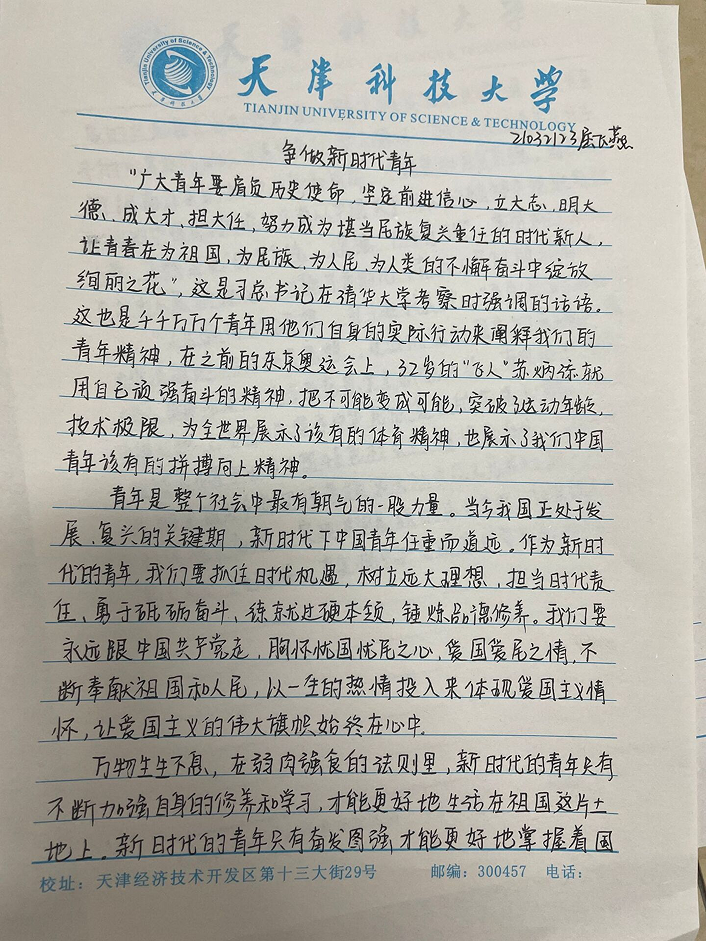 天津科技大学
TIANJIN UNIVERSITY OF SCIENCE & TECHNOLOGY
21032123屈飞燕
争做新时代青年
“广大青年要肩负历史使命，坚定前进信心，立大志、明大
德、成大才、担大任，努力成为堪当民族复兴重任的时代新人，
让青春在为祖国、为民族、为人民、为人类的不懈奋斗中绽放
绚丽之花”，这是习总书记在清华大学考察时强调的话语。
这也是千千万万个青年用他们自身的实际行动来阐释我们的
青年精神，在之前的东京奥运会上，32岁的“飞人”苏炳添就
用自己顽强奋斗的精神，把不可能变成可能，突破了运动年龄，
技术极限，为全世界展示了该有的体育精神，也展示了我们中国
青年该有的拼搏向上精神。
青年是整个社会中最有朝气的一股力量。当今我国正处于发
展、复兴的关键期，新时代下中国青年任重而道远。作为新时
代的青年，我们要抓住时代机遇，树立远大理想，担当时代责
任、勇于砥砺奋斗、练就过硬本领，锤炼品德修养。我们要
永远跟中国共产党走，胸怀忧国忧民之心，爱国爱民之情，不
断奉献祖国和人民，以一生的热情投入来体现爱国主义情
怀，让爱国主义的伟大旗帜始终在心中。
万物生生不息，在弱肉强食的法则里，新时代的青年只有
不断加强自身的修养和学习，才能更好地生活在祖国这片土
地上。新时代的青年只有奋发图强才能更好地掌握着国
校址：天津经济技术开发区第十三大街29号 邮编：300457 电话：